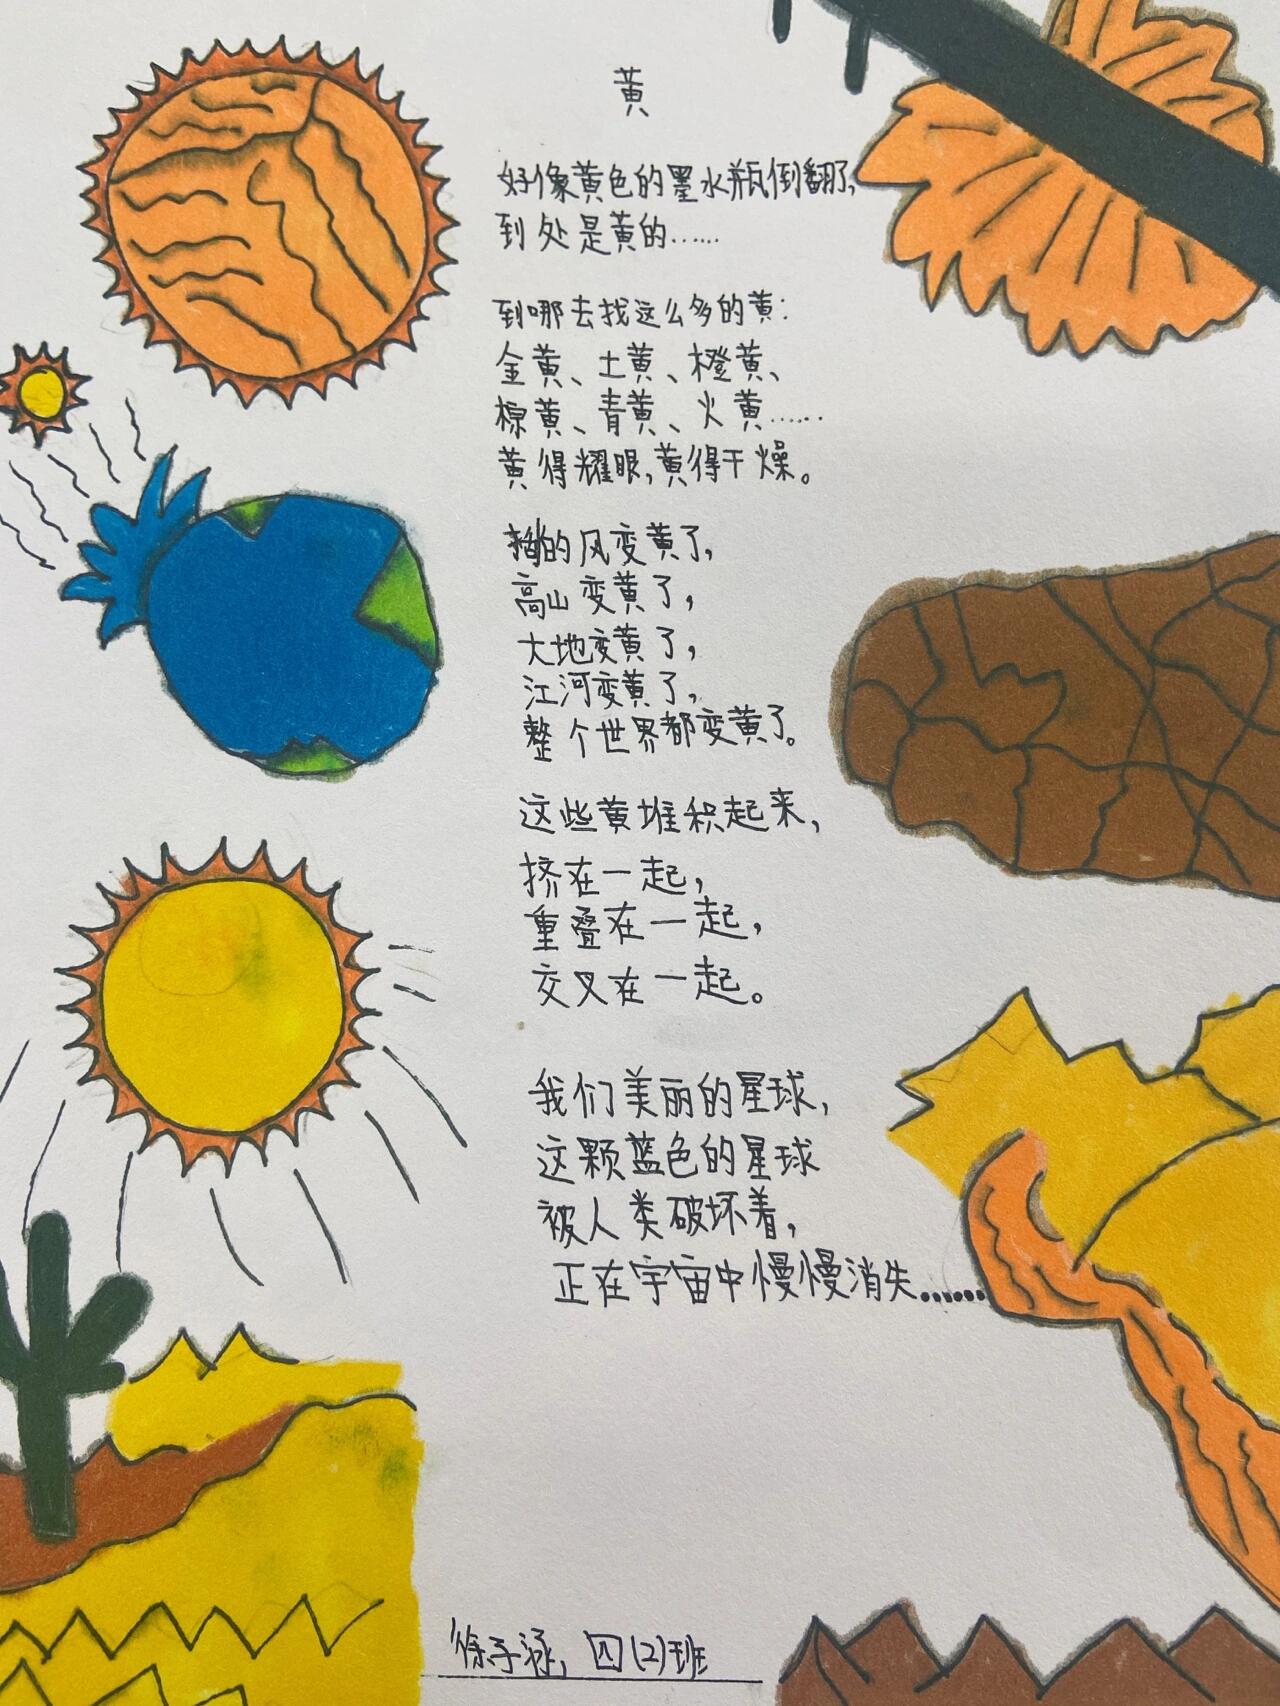 黄
好像黄色的墨水瓶倒翻了,
到处是黄的……
到哪去找这么多的黄:
金黄、土黄、橙黄、
棕黄、青黄、火黄……
黄得耀眼,黄得干燥。
的风变黄了,
高山变黄了,
大地变黄了,
江河变黄了,
整个世界都变黄了。
这些黄堆积起来,
挤在一起,
重叠在一起,
交叉在一起。
我们美丽的星球,
这颗蓝色的星球
被人类破坏着,
正在宇宙中慢慢消失……
徐子涵,四(2)班